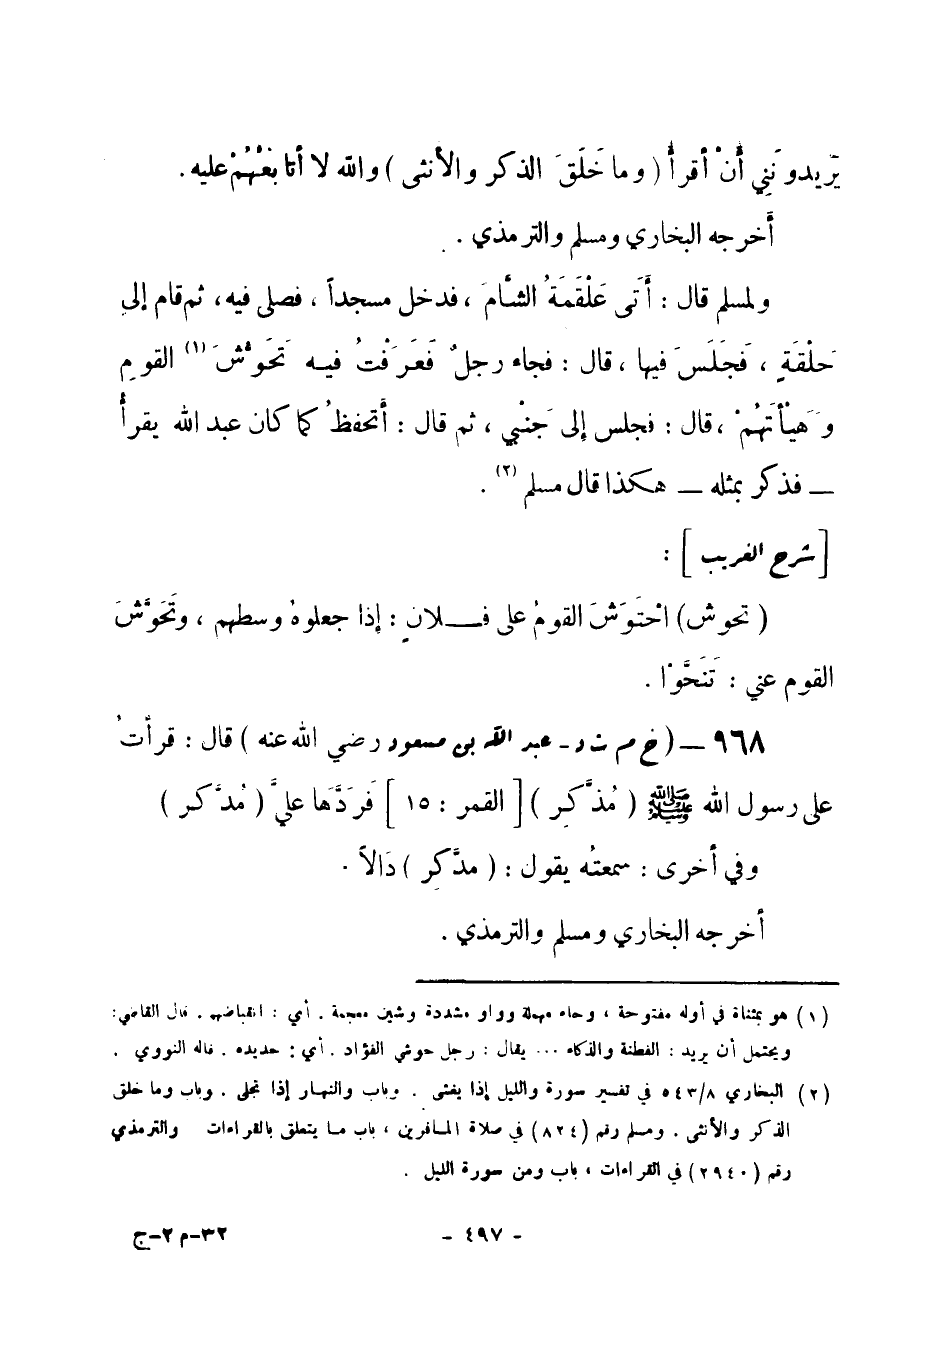 يُريدونَني أنْ أقرأُ ( وما خَلَقَ الذكر والأنثى ) والله لا أتابعُهُمْ عليه .
أخرجه البخاري ومسلم والترمذي .
ولمسلم قال : أَتَى عَلْقَمَةُ الشَّامَ ، فدخل مسجداً ، فصلى فيه، ثم قام إلى
حَلْقَةٍ ، فَجَلَسَ فيها ، قال : فجاء رجلٌ فَعَرَفْتُ فيه تَحَوُّشَ (١) القومِ
وَهَيْأَتَهُمْ ، قال : فجلس إلى جَنْبي ، ثم قال : أَتحفظُ كما كان عبد الله يقرأُ
ــ فذكر بمثله ــ هكذا قال مسلم (٢) .
[ شرح الغريب ] :
( تحوش ) احْتَوَشَ القومُ على فــلانٍ : إذا جعلوهُ وسطهم ، وتَحَوَّشَ
القوم عني : تَنَحَّوْا .
٩٦٨ ــ ( خ م ت د ـ عبد الله بن مسعود رضي الله عنه ) قال : قرأتُ
على رسول الله ﷺ ( مُذَّكِر ) [ القمر : ١٥ ] فَرَدَّهَا عليَّ ( مُدَّكر )
وفي أخرى : سمعتُه يقول : ( مدَّكِر ) دَالاً .
أخرجه البخاري ومسلم والترمذي .
(١) هو بمثناة في أوله مفتوحة ، وحاء مهملة وواو مشددة وشين معجمة . أي : انقباضهم . قال القاضي:
ويحتمل أن يريد : الفطنة والذكاء ... يقال : رجل حوشي الفؤاد . أي : حديده . قاله النووي .
(٢) البخاري ٥٤٣/٨ في تفسير سورة والليل إذا يغشى . وباب والنهار إذا تجلى . وباب وما خلق
الذكر والأنثى . ومسلم رقم (٨٢٤) في صلاة المسافرين ، باب ما يتعلق بالقراءات والترمذي
رقم (٢٩٤٠) في القراءات ، باب ومن سورة الليل .
- ٤٩٧ -
٣٢-م ٢-ج